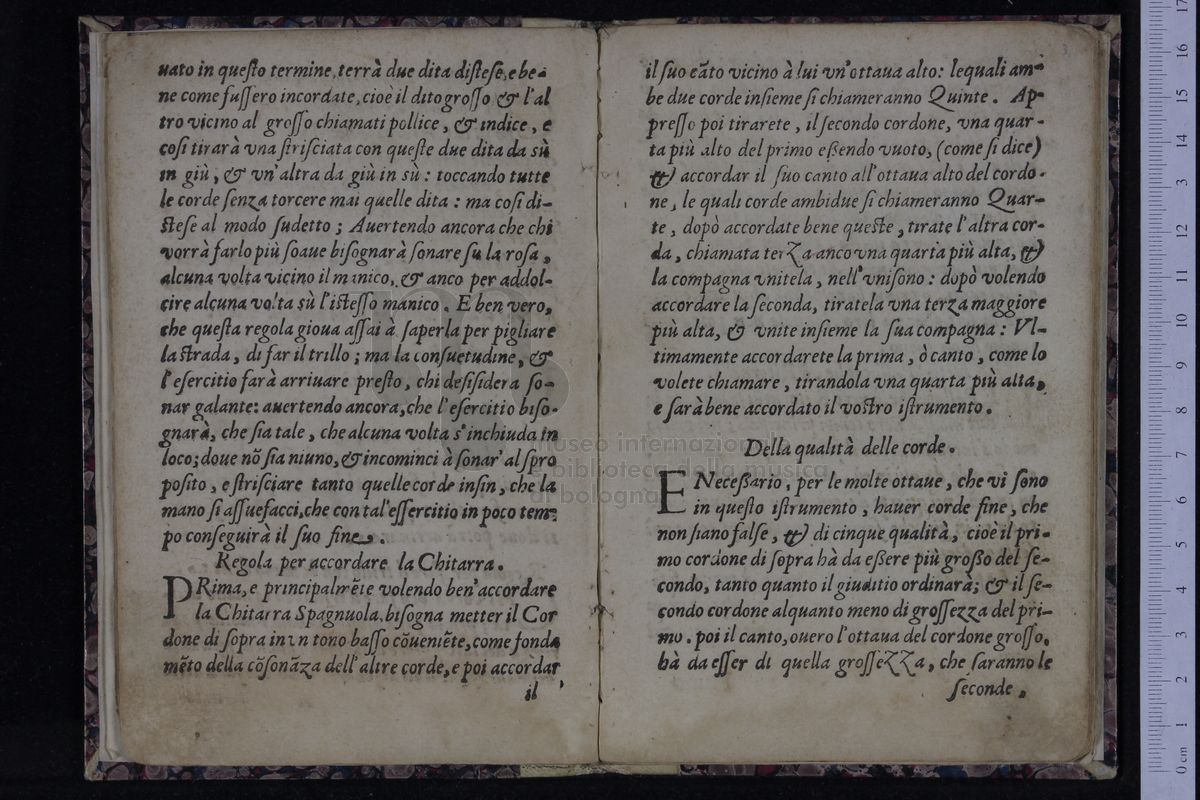 uato in questo termine, terrà due dita distese, e be-
ne come fussero incordate, cioè il dito grosso & l'al
tro vicino al grosso chiamati pollice, & indice, e
così tirarà vna strisciata con queste due dita da sù
in giù, & vn'altra da giù in sù: toccando tutte
le corde senza torcere mai quelle dita: ma così di-
stese al modo sudetto; Auertendo ancora che chi
vorrà farlo più soaue bisognarà sonare su la rosa,
alcuna volta vicino il manico, & anco per addol-
cire alcuna volta sù l'istesso manico. E ben vero,
che questa regola gioua assai à saperla per pigliare
la strada, di far il trillo; ma la consuetudine, &
l'esercitio farà arriuare presto, chi desisidera so-
nar galante: auertendo ancora, che l'esercitio biso-
gnarà, che sia tale, che alcuna volta s'inchiuda in
loco; doue nõ sia niuno, & incominci à sonar' al spro
posito, e strisciare tanto quelle corde insin, che la
mano si assuefacci, che con tal'essercitio in poco tem-
po conseguirà il suo fine.
Regola per accordare la Chitarra.
PRima, e principalmẽte volendo ben'accordare
la Chitarra Spagnuola, bisogna metter il Cor
done di sopra in vn tono basso cõueniẽte, come fonda
mẽto della cõsonãza dell'altre corde, e poi accordar
il
3
il suo cãto vicino à lui vn'ottaua alto: lequali am-
be due corde insieme si chiameranno Quinte. Ap-
presso poi tirarete, il secondo cordone, vna quar-
ta più alto del primo essendo vuoto, (come si dice)
& accordar il suo canto all'ottaua alto del cordo-
ne, le quali corde ambidue si chiameranno Quar-
te, dopò accordate bene queste, tirate l'altra cor-
da, chiamata terza anco vna quarta più alta, &
la compagna vnitela, nell'vnisono: dopò volendo
accordare la seconda, tiratela vna terza maggiore
più alta, & vnite insieme la sua compagna: Vl-
timamente accordarete la prima, ò canto, come lo
volete chiamare, tirandola vna quarta più alta,
e sarà bene accordato il vostro istrumento.
Della qualità delle corde.
E Necessario, per le molte ottaue, che vi sono
in questo istrumento, hauer corde fine, che
non siano false, & di cinque qualità, cioè il pri-
mo cordone di sopra hà da essere più grosso del se-
condo, tanto quanto il giuditio ordinarà; & il se-
condo cordone alquanto meno di grossezza del pri-
mo. poi il canto, ouero l'ottaua del cordone grosso,
hà da esser di quella grossezza, che saranno le
seconde,
museo internazionale
e biblioteca della musica
di bologna